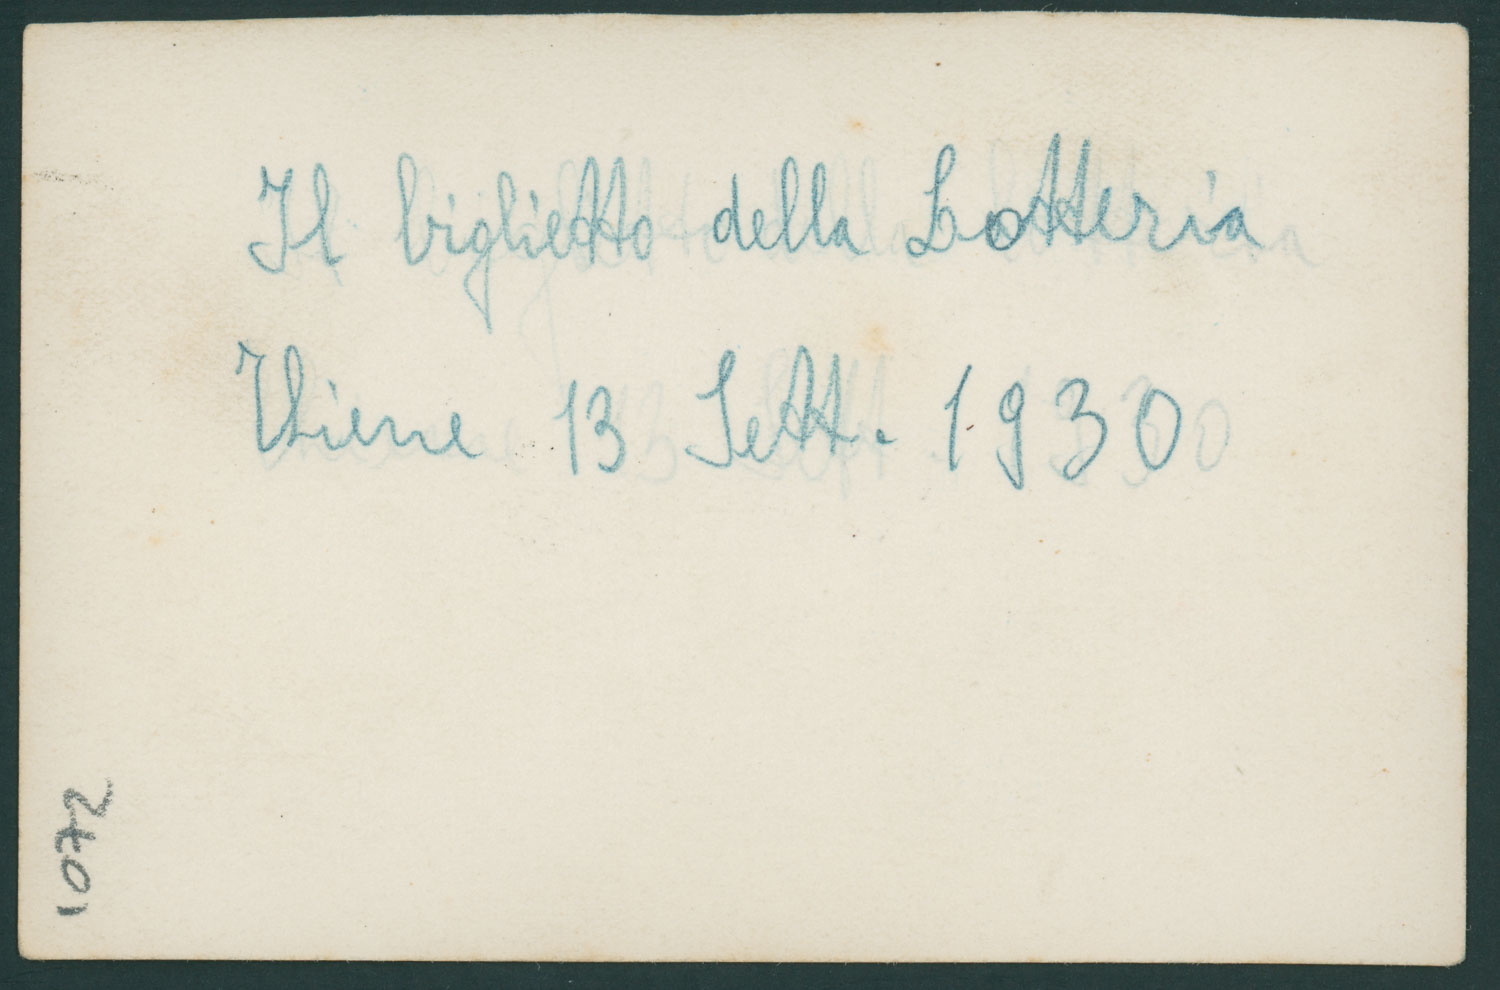 Il biglietto della Lotteria
Thiene 13 Sett. 1930
2701